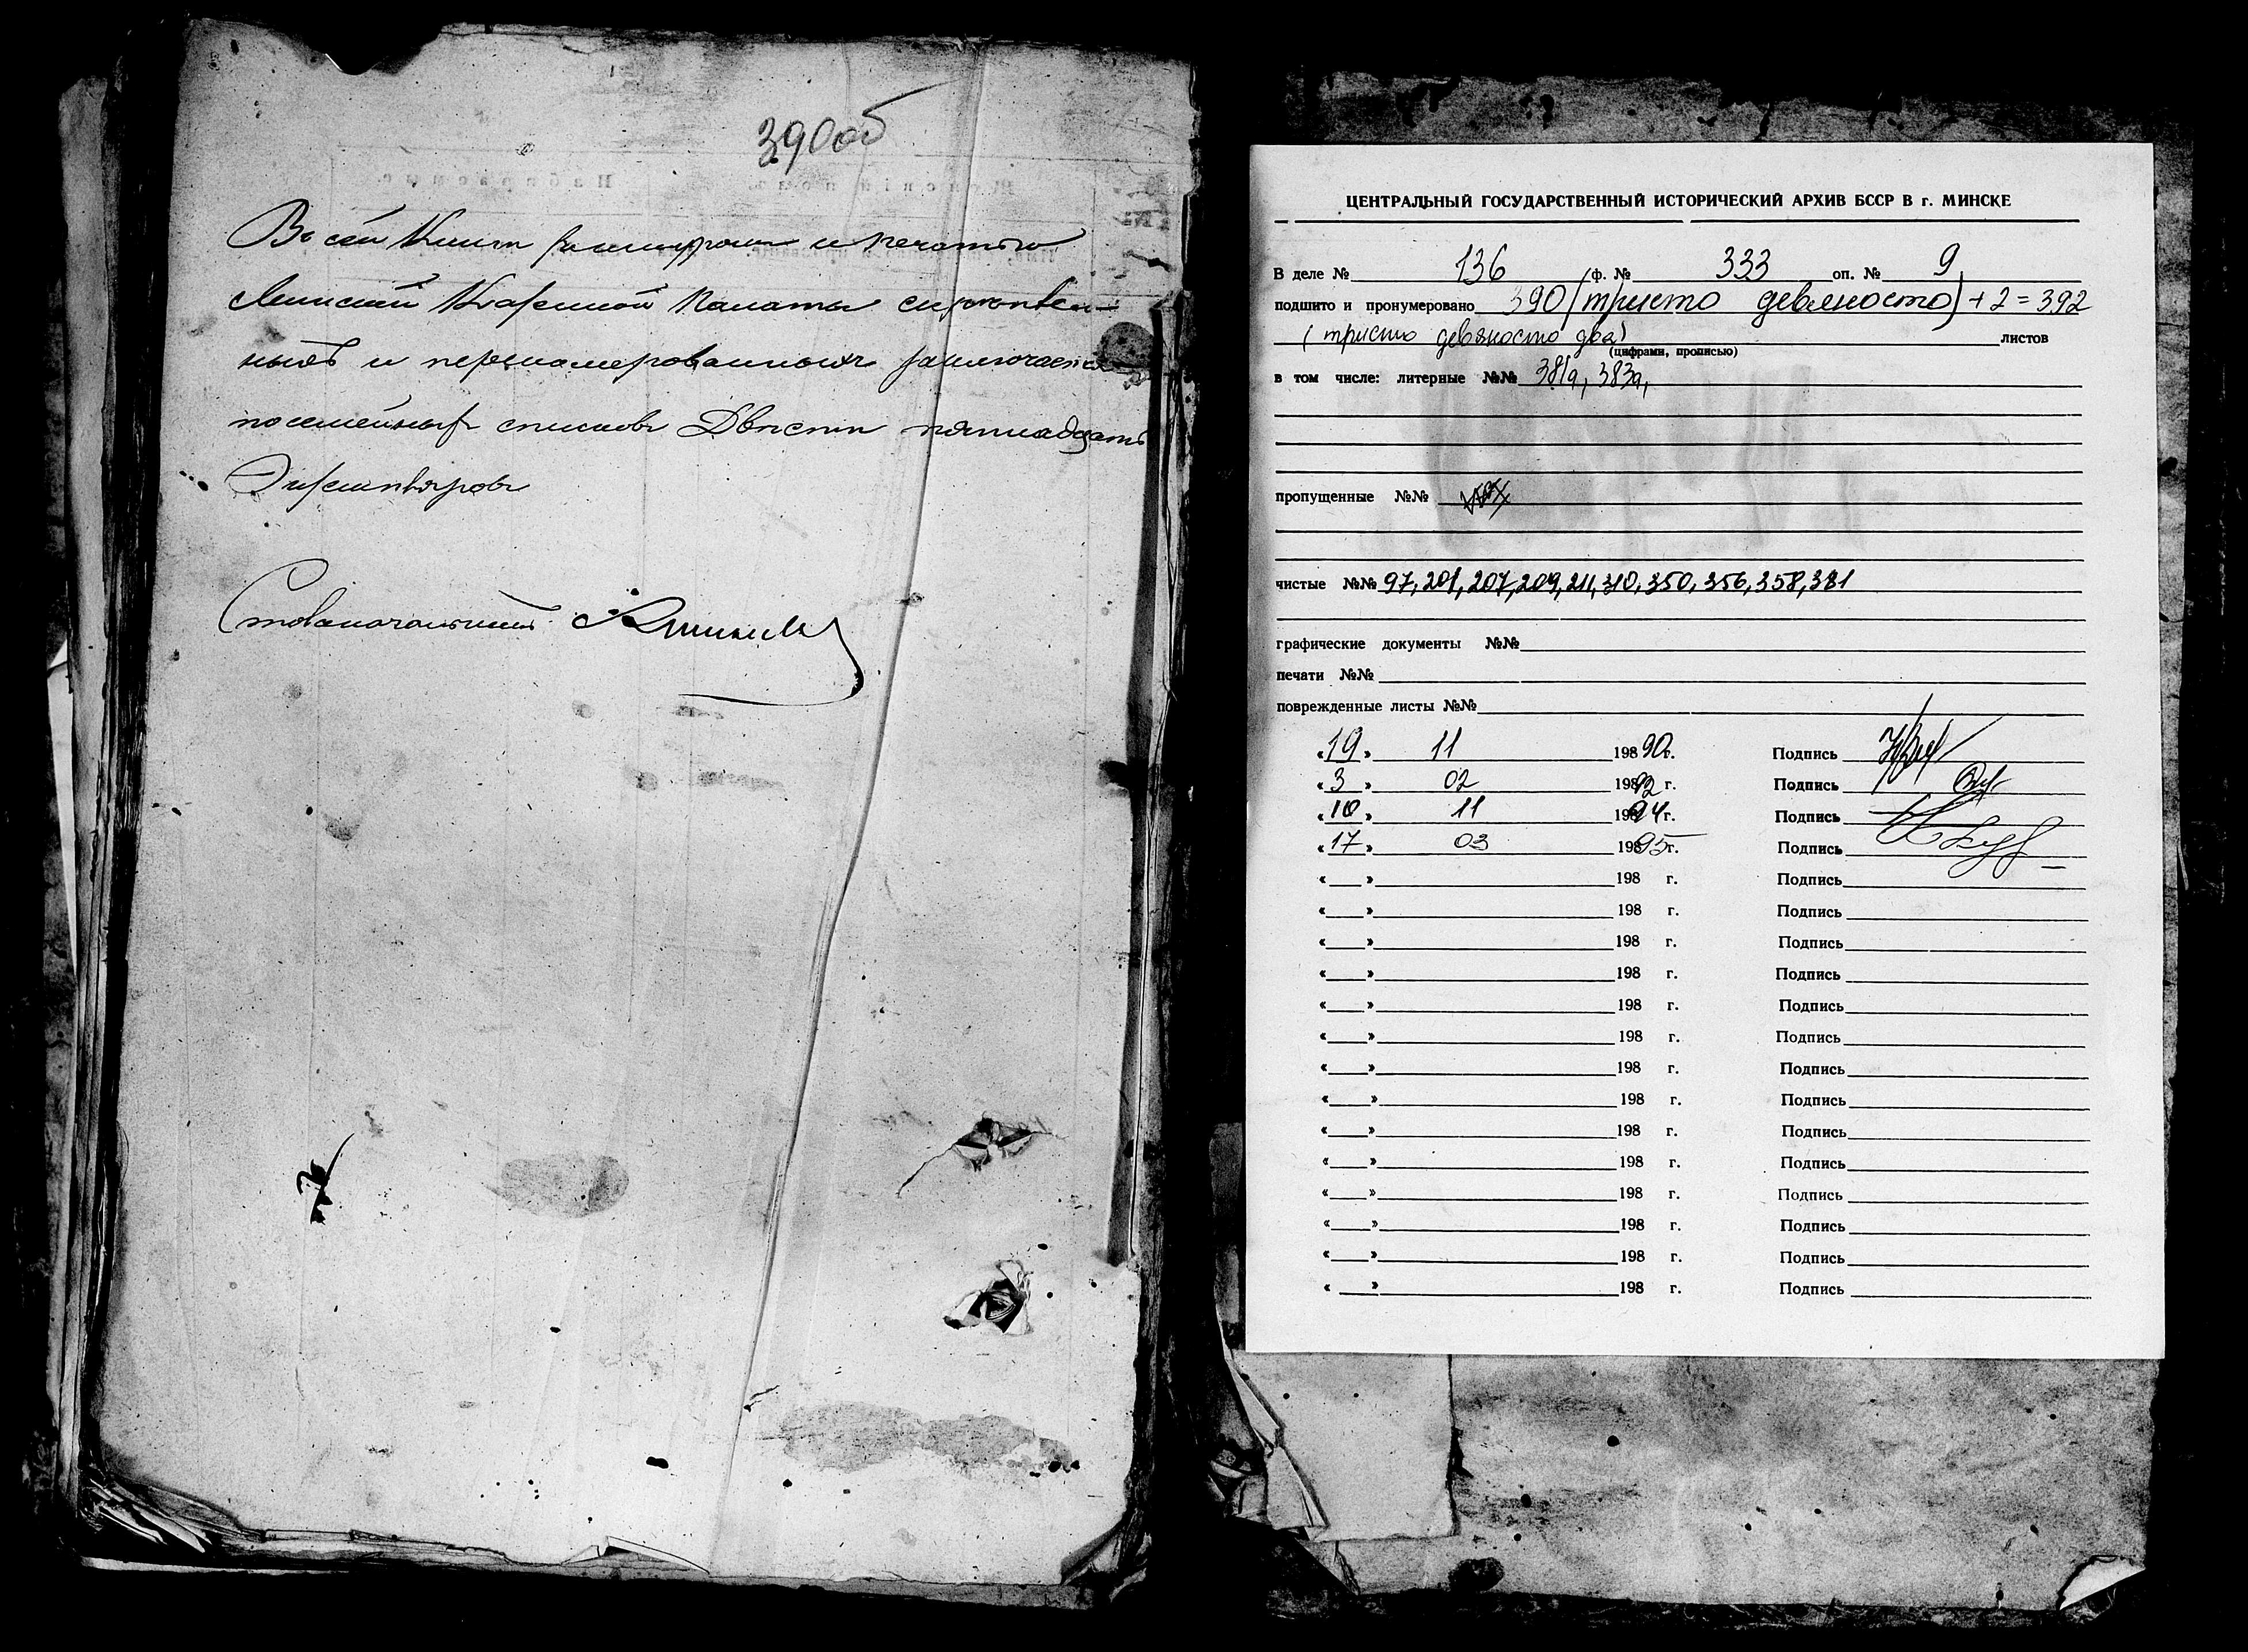 390об
Въ сей Книгѣ за шнуромъ и печатью
Минской Казенной Палаты скрѣплен-
ныхъ и перенумерованныхъ заключается
посемейныхъ списковъ Двѣсти пятнадцать
Экземпляровъ
Столоначальникъ
ЦЕНТРАЛЬНЫЙ ГОСУДАРСТВЕННЫЙ ИСТОРИЧЕСКИЙ АРХИВ БССР В г. МИНСКЕ
В деле № 136 (ф. № 333 оп. № 9)
подшито и пронумеровано 390 (триста девяносто) + 2 = 392
(триста девяносто два) листов
(цифрами, прописью)
в том числе: литерные №№ 381а, 383а,
пропущенные №№
чистые №№ 97, 201, 207, 209, 211, 310, 350, 356, 358, 381
графические документы №№
печати №№
поврежденные листы №№
«19» 11 19890г. Подпись
«3» 02 19892 г. Подпись
«10» 11 19894г. Подпись
«17» 03 19895г. Подпись
« » 198 г. Подпись
« » 198 г. Подпись
« » 198 г. Подпись
« » 198 г. Подпись
« » 198 г. Подпись
« » 198 г. Подпись
« » 198 г. Подпись
« » 198 г. Подпись
« » 198 г. Подпись
« » 198 г. Подпись
« » 198 г. Подпись
« » 198 г. Подпись
« » 198 г. Подпись
« » 198 г. Подпись